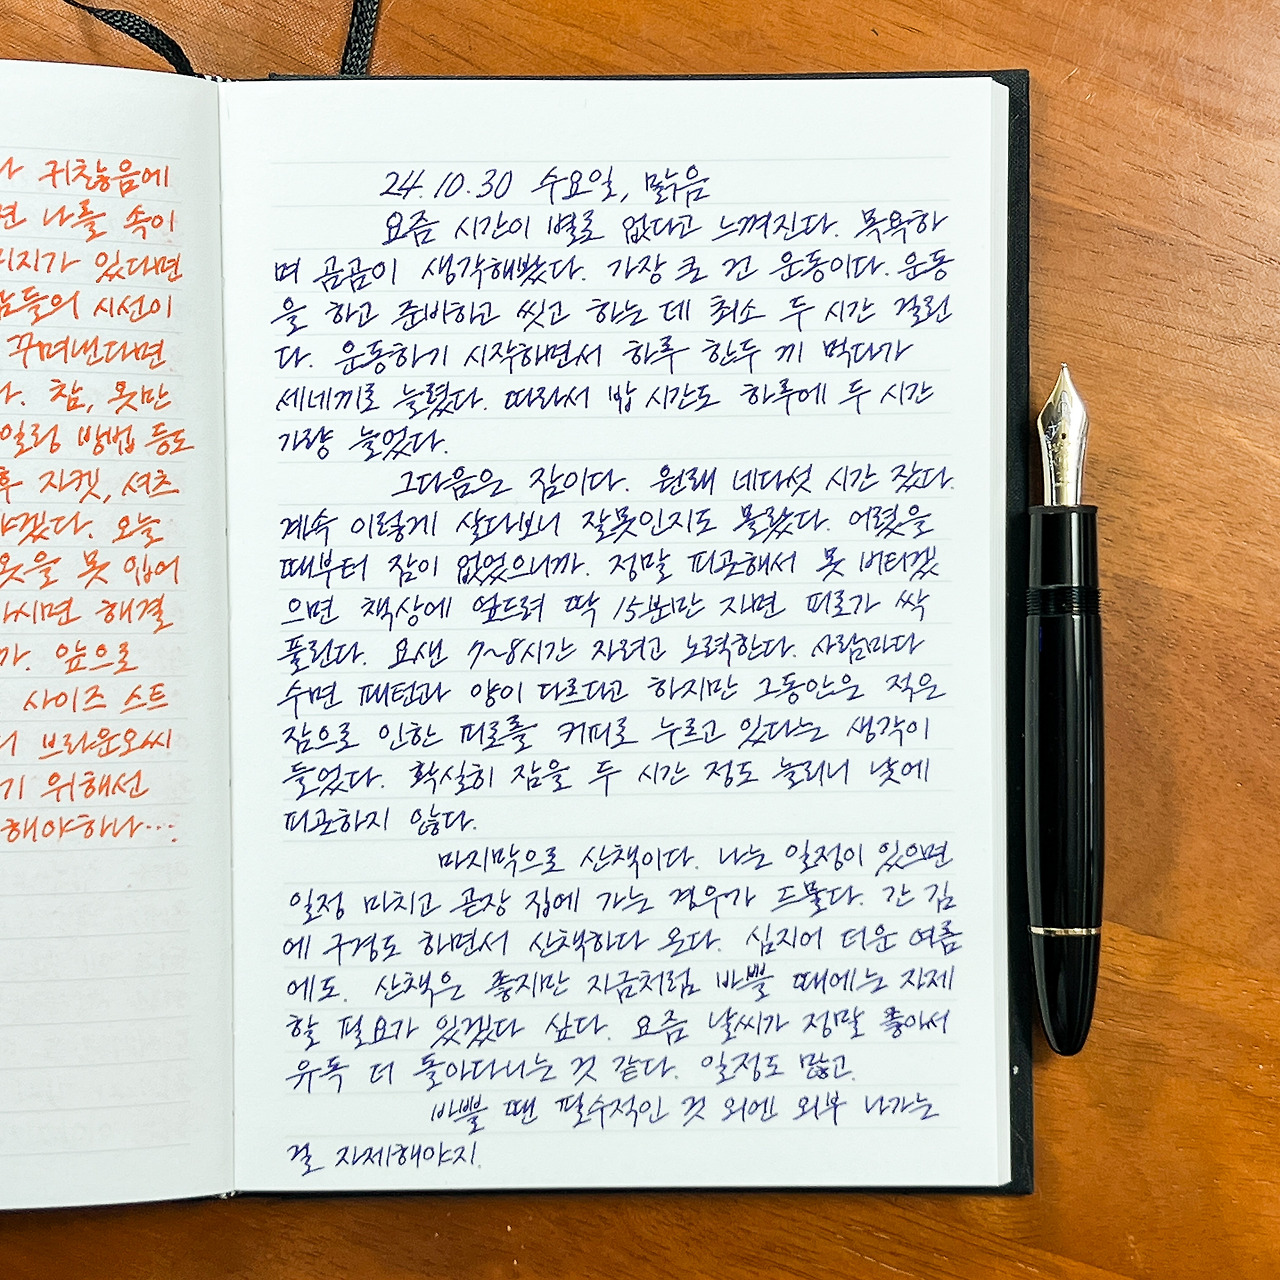 귀찮음에
나를 속이
있다면
시선이
꾸며낸다면
참, 옷만
방법 등도
자켓, 셔츠
오늘
옷을 못 입어
해결
앞으로
사이즈 스트
브라운오씨
위해선
해야하나…
24.10.30 수요일, 맑음
요즘 시간이 별로 없다고 느껴진다. 목욕하
며 곰곰이 생각해봤다. 가장 큰 건 운동이다. 운동
을 하고 준비하고 씻고 하는 데 최소 두 시간 걸린
다. 운동하기 시작하면서 하루 한두 끼 먹다가
세네끼로 늘렸다. 따라서 밥 시간도 하루에 두 시간
가량 늘었다.
그다음은 잠이다. 원래 네다섯 시간 잤다.
계속 이렇게 살다보니 잘못인지도 몰랐다. 어렸을
때부터 잠이 없었으니까. 정말 피곤해서 못 버티겠
으면 책상에 엎드려 딱 15분만 자면 피로가 싹
풀린다. 요샌 7~8시간 자려고 노력한다. 사람마다
수면 패턴과 양이 다르다고 하지만 그동안은 적은
잠으로 인한 피로를 커피로 누르고 있다는 생각이
들었다. 확실히 잠을 두 시간 정도 늘리니 낮에
피곤하지 않다.
마지막으로 산책이다. 나는 일정이 있으면
일정 마치고 곧장 집에 가는 경우가 드물다. 간 김
에 구경도 하면서 산책하다 온다. 심지어 더운 여름
에도. 산책은 좋지만 지금처럼 바쁠 때에는 자제
할 필요가 있겠다 싶다. 요즘 날씨가 정말 좋아서
유독 더 돌아다니는 것 같다. 일정도 많고.
바쁠 땐 필수적인 것 외엔 외부 나가는
걸 자제해야지.